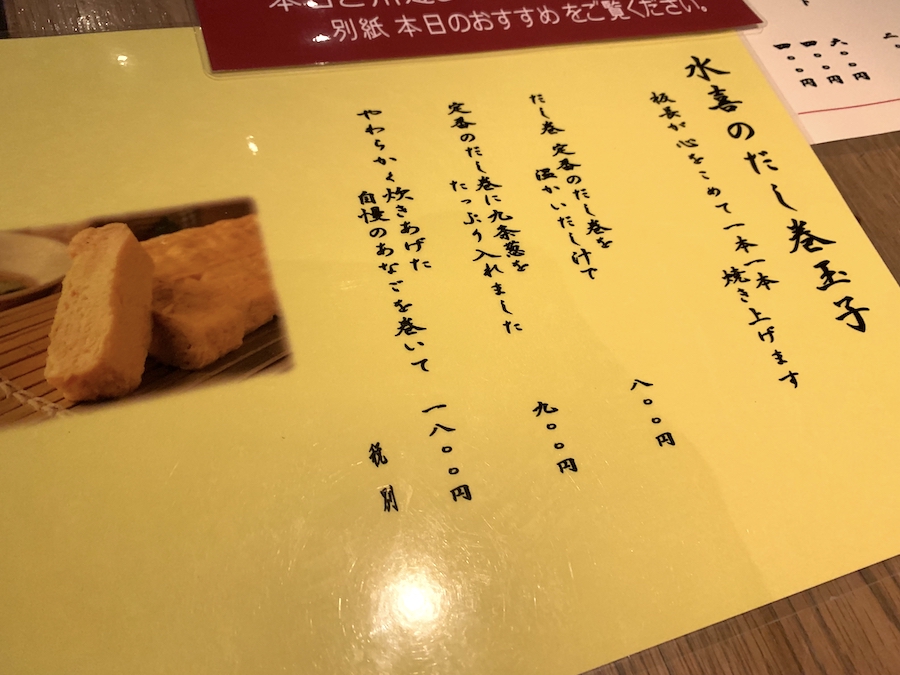 別紙 本日のおすすめをご覧ください。
六〇〇円
四〇〇円
四〇〇円
水喜のだし巻玉子
板長が心をこめて一本一本
焼き上げます
だし巻 定番のだし巻を
温かいだし汁で
八〇〇円
定番のだし巻に九条葱を
たっぷり入れました
九〇〇円
やわらかく炊きあげた
自慢のあなごを巻いて
一八〇〇円
税別